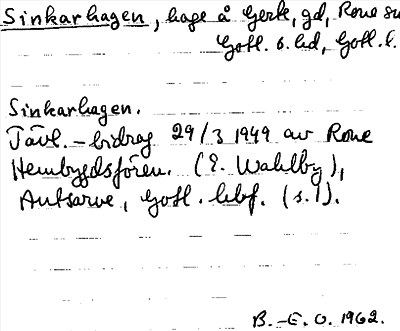 Sinkarhagen, hage å Gerk, gd, Rone sn
Gotl. s. hd, Gotl. l.
Sinkarhagen.
Tävl.-bidrag 29/3 1949 av Rone
Hembygdsfören. (E. Wahlby),
Autsarve, Gotl. hbf. (s. 1).
B.-E. O. 1962.